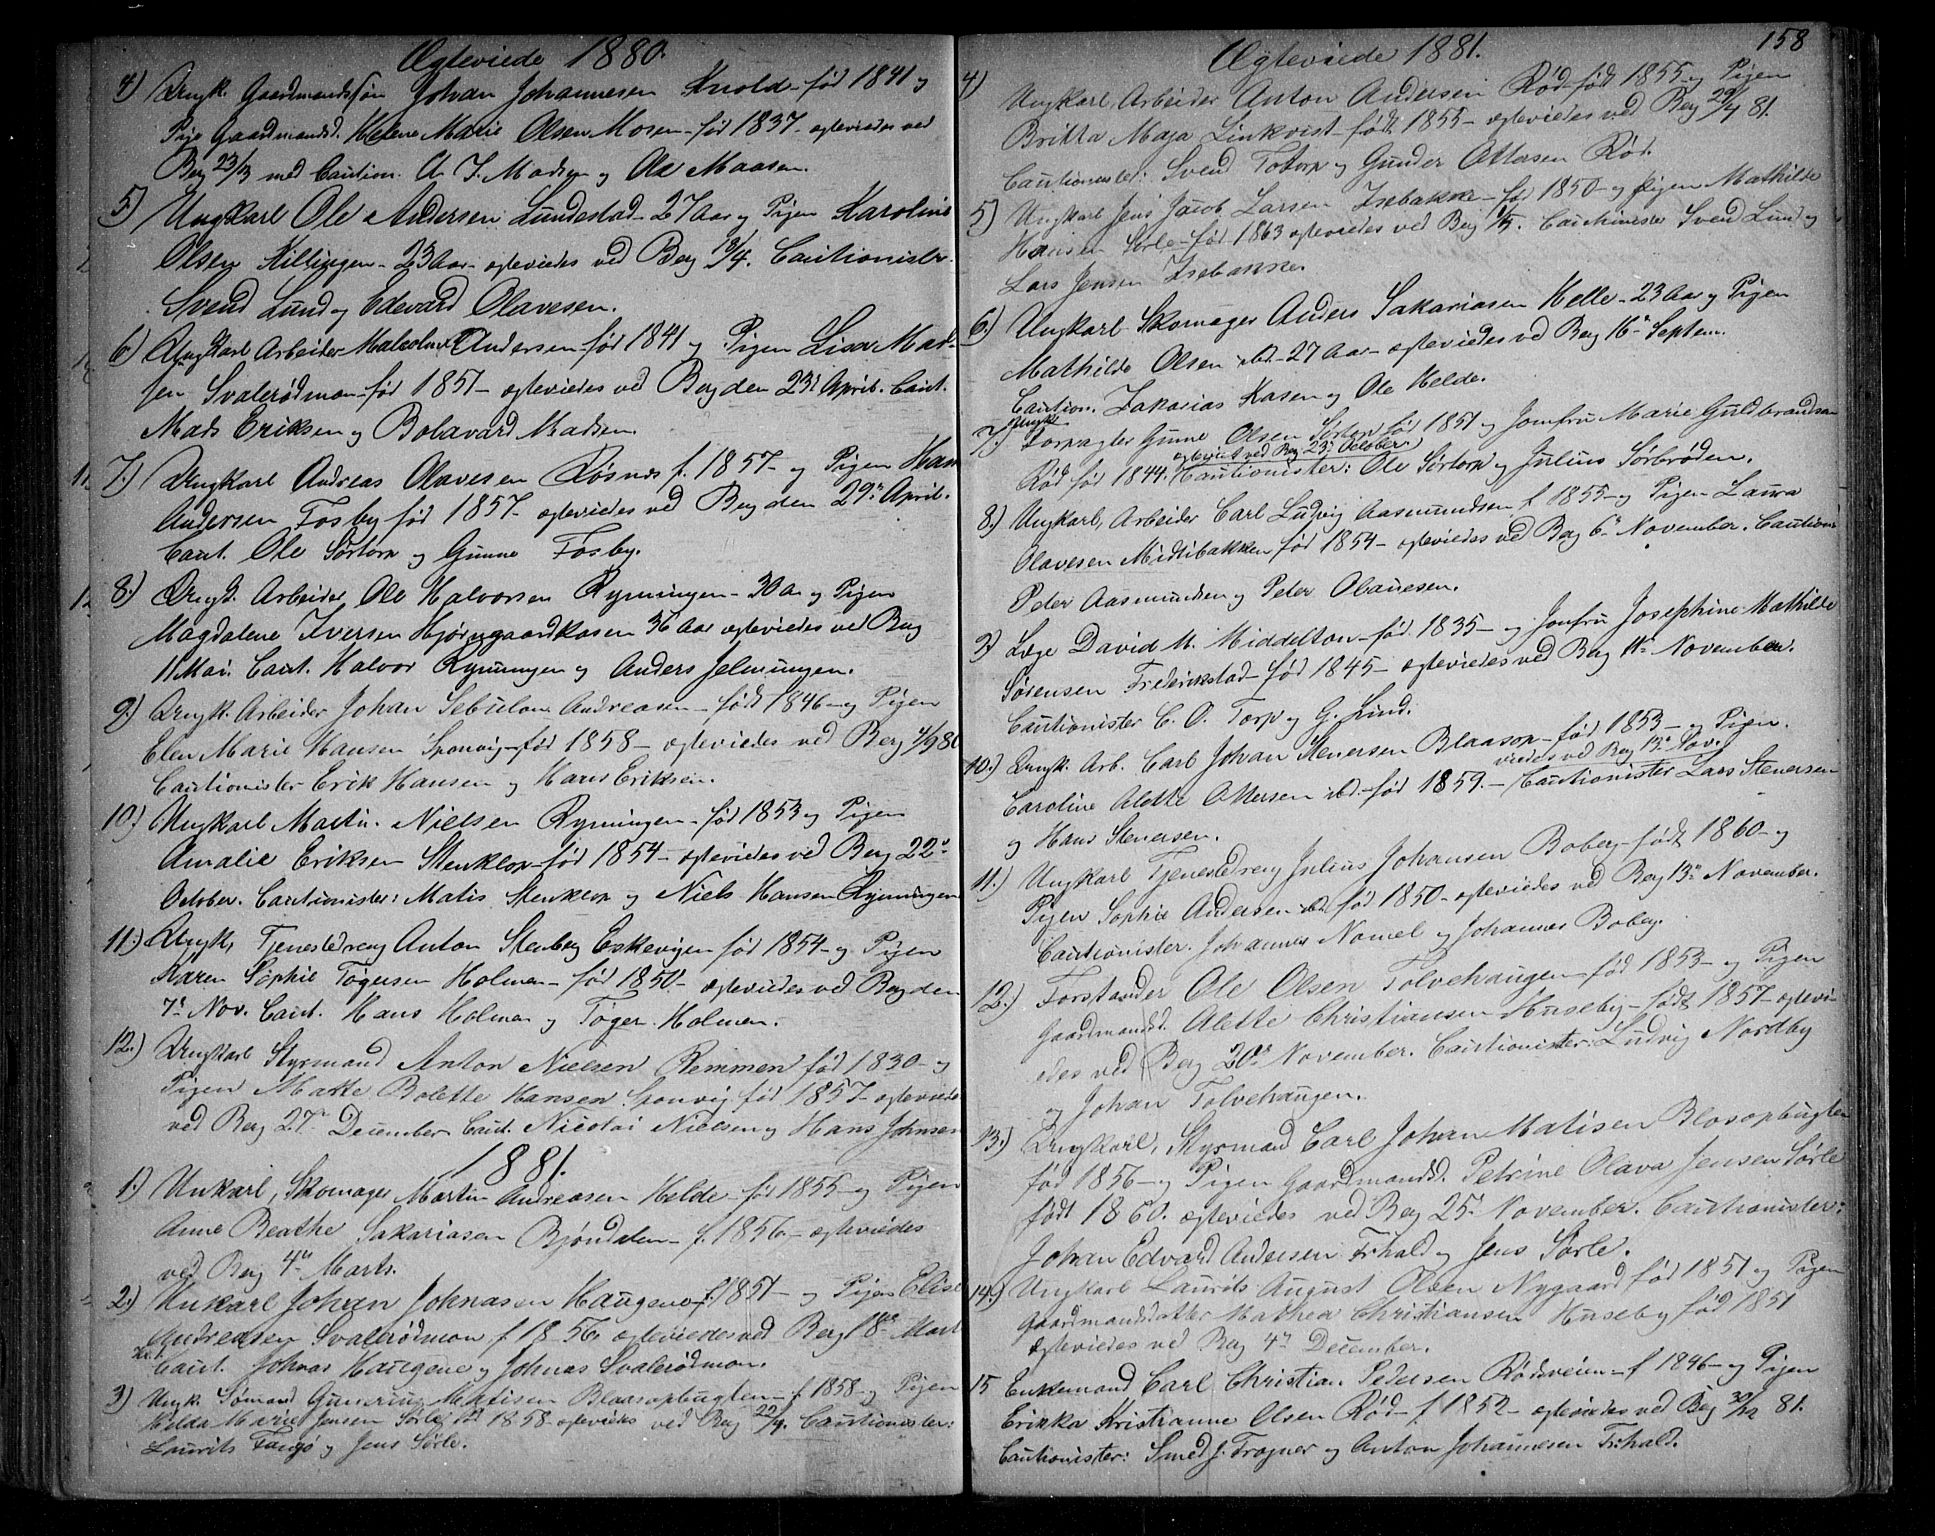 Ægteviede 1880.
4) Ungk. Gaardmandssøn Johan Johannesen Knold - før 1841 og
Pige Gaardmandsd. Helene Marie Olsen Mosen - før 1837 - egteviedes ved
Berg 23/3 med Caution. A. J. Madsen og Ole Maasen.
5) Ungkarl Ole Andersen Lundestad - 27 Aar og Pigen Karoline
Olsen Killingen - 23 Aar - egteviedes ved Berg 13/4. Cautionister
Svend Lund og Edevard Olavesen.
6) Ungkarl Arbeider Andersen før 1841 og Pigen Lisa Mad-
sen Svalerødmon - før 1851 - egteviedes ved Berg den 23d April. Caut.
Mads Eriksen og Bolavard Madsen
7.) Ungkarl Andreas Olavesen Røsnes f. 1857 - og Pigen
Andersen Fosby før 1857 - egteviedes ved Berg den 29n April.
Caut. Ole Sørtorp og Gunne Fosby.
8.) Ungk. Arbeider Ole Halvorsen Rymningen - 30 A. og Pigen
Magdalene Iversen Hjørngaardkasen 36 Aar egteviedes ved Berg
11 Mai. Caut. Halvor Rymningen og Anders
9.) Ungk. Arbeider Johan Sebulon Andreasen - født 1846 - og Pigen
Elen Marie Hansen Sponvig - før 1858 - egteviedes ved Berg 4/9 80
Cautionister Erik Hansen og Hans Eriksen.
10.) Ungkarl Martin Nielsen Rymningen - før 1853 og Pigen
Amalie Eriksen Stenklop - før 1854 - egteviedes ved Berg 22n
October. Cautionister: Matis Stenklop og Niels Hansen Rymningen
11.) Ungk. Tjenestdreng Anton Stenberg Eskevigen før 1854 - og Pigen
Karen Sophie Tøgersen Holmen - før 1850 - egteviedes ved Berg den
7n Nov. Caut. Hans Holmen og Tøger Holmen.
12.) Ungkarl Styrmand Anton Nielsen Remmen før 1830 - og
Pigen Matte Bolette Hansen Sponvig før 1857 - egteviedes
ved Berg 27n December Caut. Nicolai Nielsen og Hans Johnsen
1881.
1.) Unkarl, Skomager Martin Andreasen Helde - før 1855 - og Pigen
Anne Beathe Sakariasen Bjøndalen - f. 1856 - egteviedes
ved Berg 4n Marts.
2.) Unkarl Johan Johnasen Haugene - f. 1851 - og Pigen Elise
Andreasen Svalerødmon f. 1856 egteviedes ved Berg 18n Mart
Caut. Johnas Haugene og Johnas Svalerødmon.
3) Ungk. Sømand Matisen Blaasopbugten - f. 1858 - og Pigen
Helda Marie Jensen Sørle før 1858 egteviedes ved Berg 22/4. Cautionister:
Laurits og Jens Sørle.
158
Ægteviede 1881.
4) Ungkarl, Arbeider Anton Andersen Rød - født 1855 - og Pigen
Britta Maja Linkvist - født 1855 - egteviedes ved Berg 29/4 81.
Cautionister: Svend Totorp og Gunder Ottersen Rød.
5) Ungkarl Jens Jacob Larsen Isebakke - før 1850 - og Pigen Mathilde
Hansen Sørle - før 1863 egteviedes ved Berg Cautionister Svend Lund og
Lars Jensen Isebakke
6.) Ungkarl Skomager Anders Sakariasen Helle - 23 Aar og Pigen
Mathilde Olsen ibd - 27 Aar - egteviedes ved Berg 16n Septem.
Caution. Zakarias Kasen og Ole Helde.
7.) Ungk. Forpagter Gunne Olsen Sørtorp før 1851 og Jomfru Marie Guldbrandsen
egteviet ved Berg 23n October.
Rød før 1844. Cautionister: Ole Sørtorp og Julius Sørbrøden.
8.) Ungkarl, Arbeider Carl Ludvig Aasmundsen f. 1855 - og Pigen Laura
Olavesen Midtibakken før 1854 - egteviedes ved Berg 6n November. Caution
Peter Aasmundsen og Peter Olavesen.
9) Læge David M. Middelton - før 1835 - og Jomfru Josephine Mathilde
Sørensen Frederikstad - før 1845 - egteviedes ved Berg 11n November.
Cautionister C. O. Torp og G. Lind.
10.) Ungk. Arb. Carl Johan Stenersen Blaasop - født 1853 - og Pigen
viedes ved Berg 13n Nov.
Caroline Alette Ottersen ibd. - før 1859. - Cautionister Lars Stenersen
og Hans Stenersen.
11.) Ungkarl Tjenestdreng Julius Johansen Boberg - født 1860 - og
Pigen Sophie Andersen ibd før 1850 - egteviedes ved Berg 13n November.
Cautionister. Johannes Nomel og Johannes Boberg.
12.) Forstander Ole Olsen Tolvehaugen - før 1853 - og Pigen
Gaardmandsd. Alette Christiansen Huseby - født 1857 - egtevi-
edes ved Berg 20n November. Cautionister: Ludvig Nordby
og Johan Tolvehaugen.
13.) Ungkarl, Styrmand Carl Johan Matisen Blosopbugten
før 1856 - og Pigen Gaardmandsd. Petrine Olava Jensen Sørle
født 1860. egteviedes ved Berg 25n November. Cautionister:
Johan Edvard Andersen Frhald og Jens Sørle.
14.) Ungkarl Laurits August Olsen Nygaard før 1851 og Pigen
Gaardmandsdatter Mathea Christiansen Huseby før 1851
egteviedes ved Berg 4n December.
15 Enkemand Carl Christian Pedersen Rødsveien - f. 1846 - og Pigen
Erikka Kristianne Olsen Rød - f. 1852 - egteviedes ved Berg 30/12 81.
Cautionister: Smed J. Trogner og Anton Johannesen Frhald.